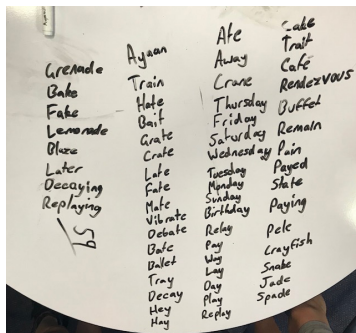 Grenade
Bake
Fake
Lemonade
Blaze
Later
Decaying
Replaying
59
Ayaan
Train
Hate
Bait
Grate
Crate
Late
Fate
Mate
Vibrate
Debate
Bate
Ballet
Tray
Decay
Hey
Hay
Ate
Away
Crane
Thursday
Friday
Saturday
Wednesday
Tuesday
Monday
Sunday
Birthday
Relay
Pay
Way
Lay
Day
Play
Replay
Cake
Trait
Café
Rendezvous
Buffet
Remain
Pain
Payed
State
Paying
Pele
Crayfish
Snake
Jade
Spade